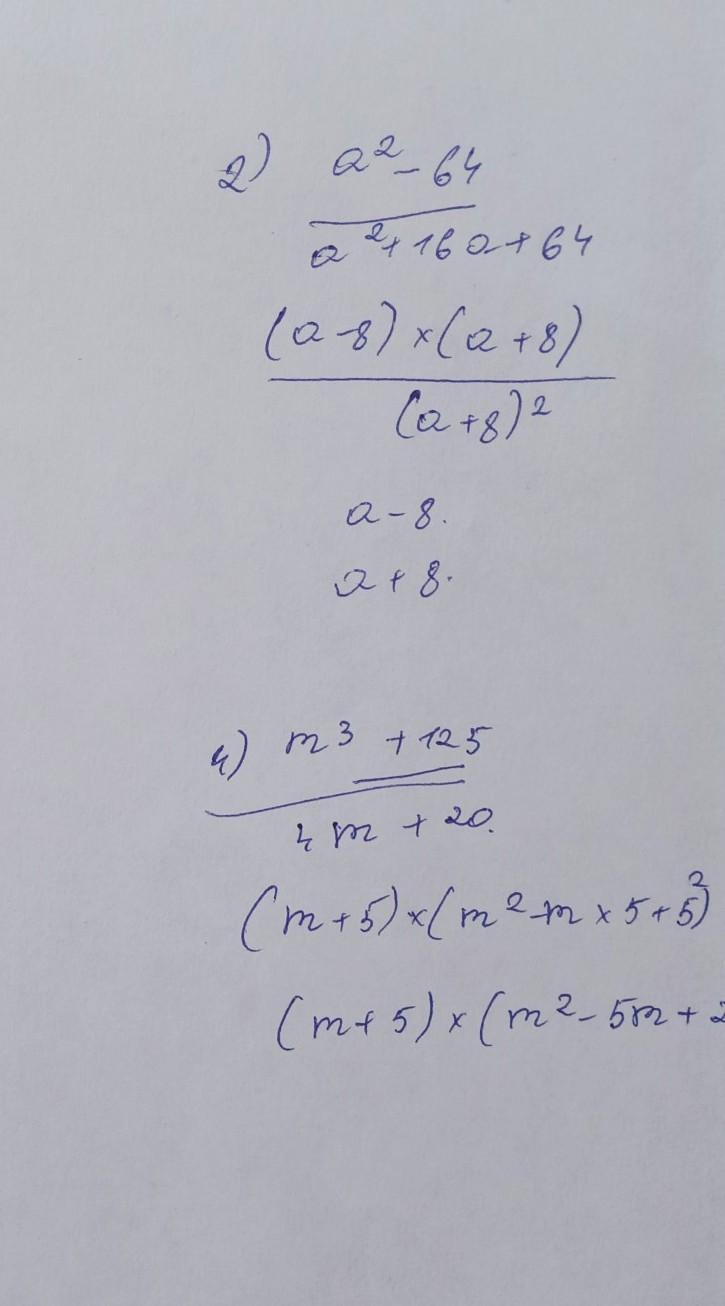 2) a²-64
a²+16a+64
(a-8)×(a+8)
(a+8)²
a-8.
a+8.
4) m³ +125
4m +20.
(m+5)×(m²-m×5+5²)
(m+5)×(m²-5m+2